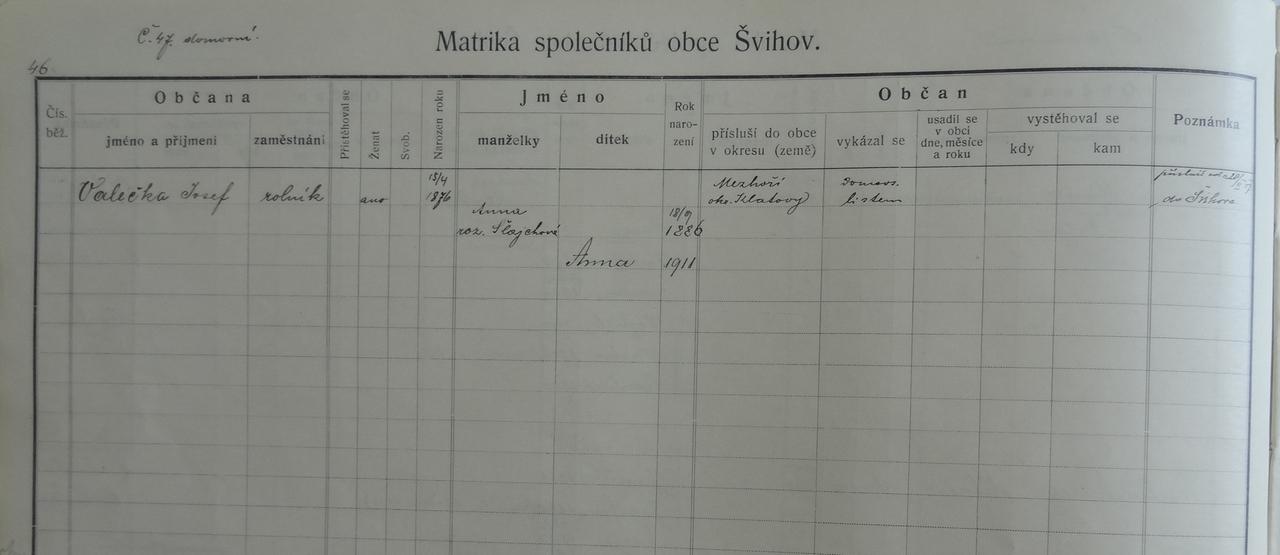 Č. 47. domovní.
Matrika společníků obce Švihov.
46
Čís. běž.
Občana
jméno a příjmení
zaměstnání
Přistěhoval se
Ženat
Svob.
Narozen roku
Jméno
manželky
dítek
Rok naro- zení
Občan
přísluší do obce v okresu (země)
vykázal se
usadil se v obci dne, měsíce a roku
vystěhoval se
kdy
kam
Poznámka
Valečka Josef
rolník
ano
15/4
1876
Mezhoří
okr. Klatovy
Domov.
listem
do Švihova
Anna
roz. Šlajchová
18/9
1886
Anna
1911